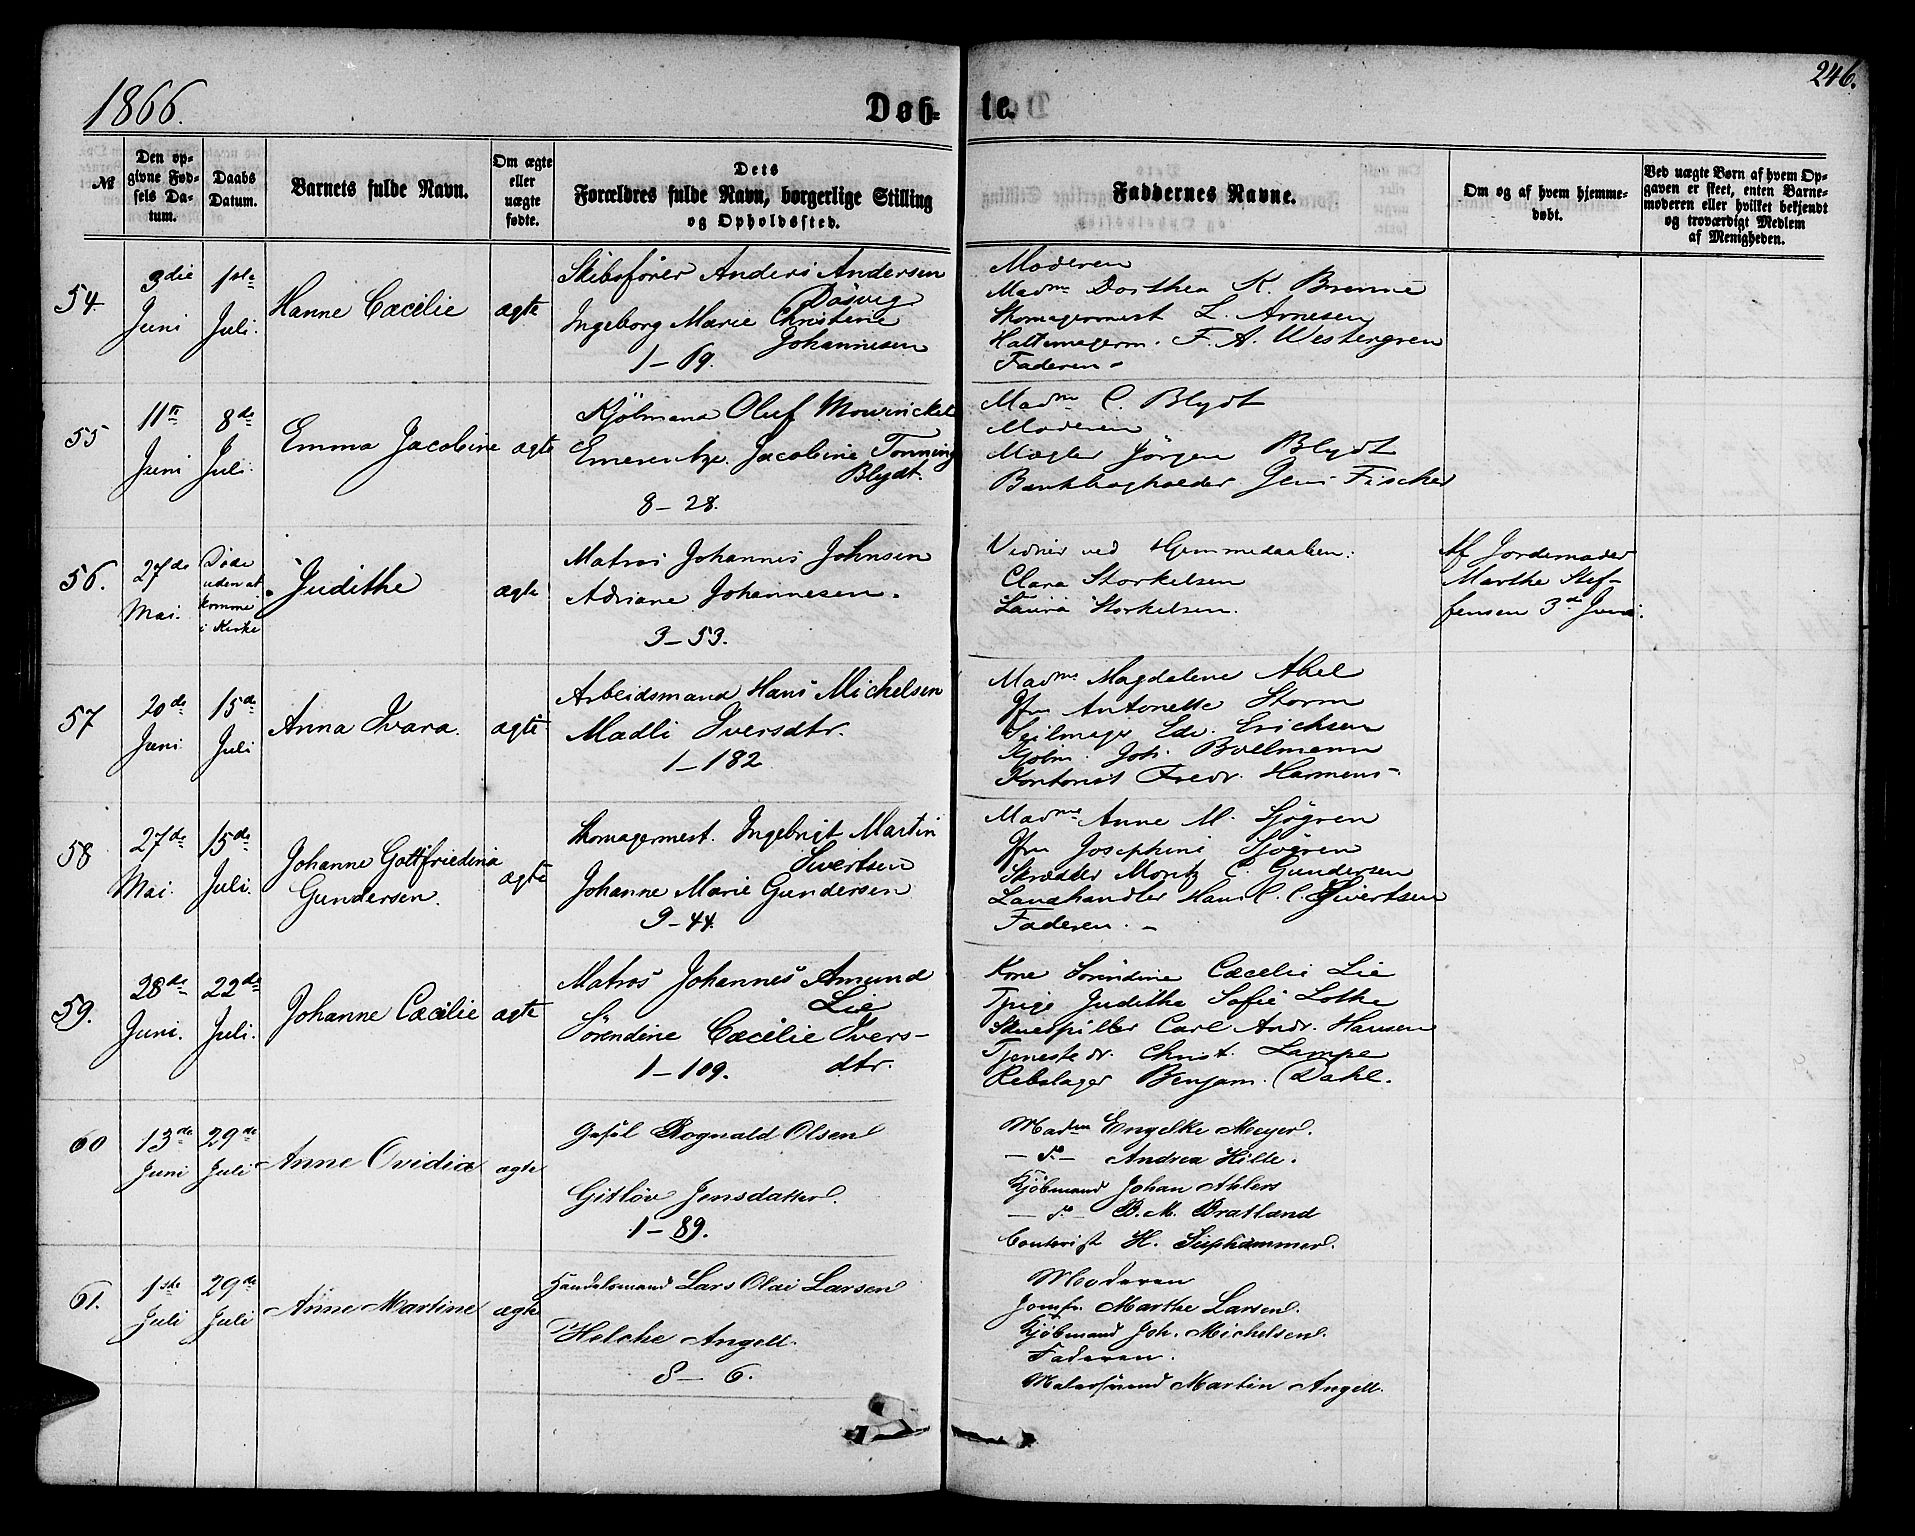 1866.
Døb-
te.
246.
№
Den op-
givne Fød-
sels Da-
tum.
Daabs
Datum.
Barnets fulde Navn.
Om ægte
eller
uægte
fødte.
Dets
Forældres fulde Navn, borgerlige Stilling
og Opholdssted.
Faddernes Navne.
Om og af hvem hjemme-
døbt.
Ved uægte Børn af hvem Op-
gaven er skeet, enten Barne-
moderen eller hvilket bekjendt
og troværdigt Medlem
af Menigheden.
54.
3die
Juni
1ste
Juli.
Hanne Cæcilie
ægte
Skibsfører Anders Andersen
Dosvig
Ingeborg Marie Christine
Johannesen
1-69.
Moderen
Madme Dorthea K. Brenne
Skomagermest L. Arnesen
Hattemagerm. F. A. Westergren
Faderen
55
11te
Juni
8de
Juli.
Emma Jacobine
ægte
Kjöbmand Oluf Mowinckel
Emerentze Jacobine Tonning
Blydt.
8-28.
Madme C. Blydt
Moderen
Mægler Jörgen Blydt
Bankbogholder Jens Fischer
56.
27de
Mai.
Døde
uden at
komme
i Kirke
Judithe
ægte
Matros Johannes Johnsen
Adriane Johannesen.
3-53.
Vidner ved Hjemmedaaben:
Clara Storkelsen
Laura Storkelsen.
Af Jordemoder
Marthe Stef-
fensen 3de Juni.
57
20de
Juni
15de
Juli
Anna Ivara.
ægte
Arbeidsmand Hans Michelsen
Madli Iversdtr.
1-182
Madme Magdalene Abel
Jfru Antonette Storm
Seilmager Edv. Erichsen
Kjøbm. Joh. Bollmann
Kontorist Fredr. Harmens
58
27de
Mai.
15de
Juli.
Johanne Gottfriedina
Gundersen.
ægte
Skomagermest. Ingebrigt Martin
Sivertsen
Johanne Marie Gundersen
9-44.
Madme Anne M. Sjögren
Jfru Josephine Sjögren
Skrædder Moritz C. Gundersen
Landhandler Hans C. C. Sivertsen
Faderen.
59.
28de
Juni.
22de
Juli.
Johanne Cæcilie
ægte
Matros Johannes Amund
Lie
Sörendine Cæcilie Ivers-
dtr.
1-109.
Kone Sorendine Cæcelie Lie
Tpige Judithe Sofie Lothe
Skuespiller Carl Andr. Hansen
Tjenestedr. Christ. Lampe
Rebslager Benjam. Dahl.
60
13de
Juni
29de
Juli
Anne Ovidia
ægte
Gesel Rognald Olsen
Gitlöv Jensdatter.
1-89.
Madm Engelke Meyer.
- do - Andrea Hille.
Kjöbmand Johan Ahlers
- do - B. M. Bratland
Contorist H. Siephammer.
61.
1ste
Juli
29de
Juli
Anne Martine
ægte
Handelsmand Lars Olai Larsen
Helche Angell.
8-6.
Moderen
Jomfr. Marthe Larsen.
Kjöbmand Joh. Michelsen.
Faderen.
Malersvend Martin Angell.